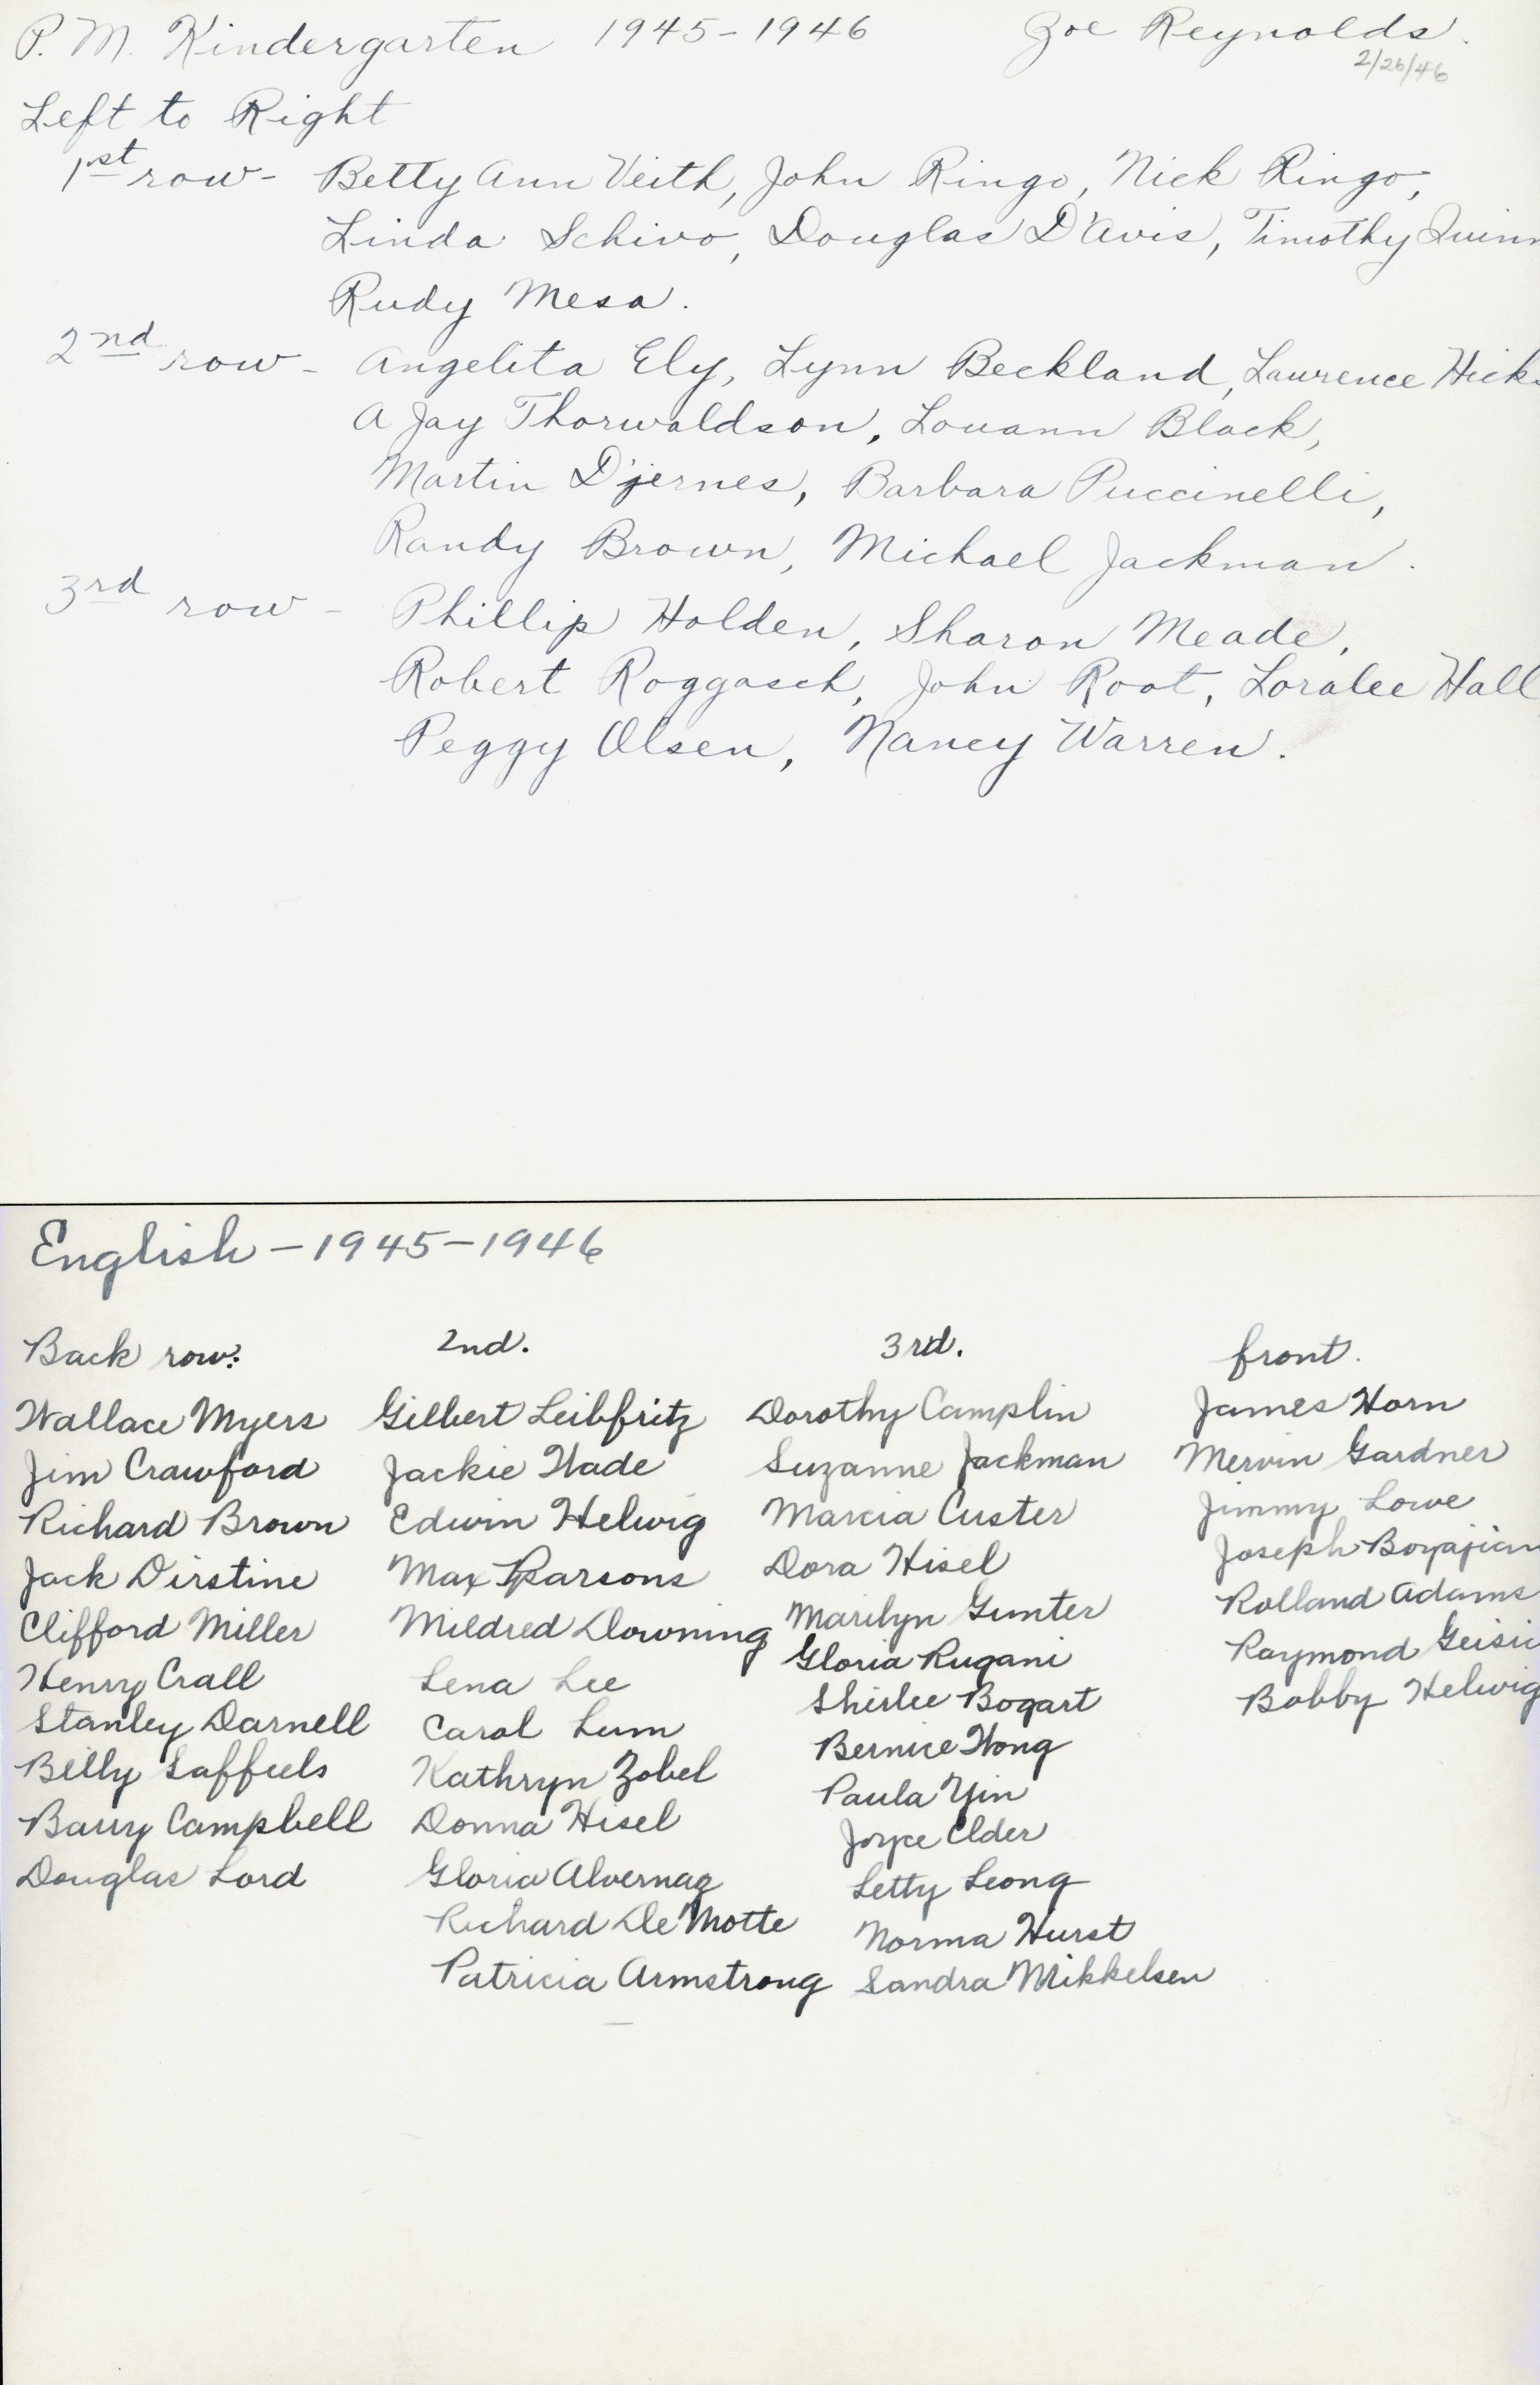 P. M. Kindergarten 1945-1946 Zoe Reynolds.
2/26/46
Left to Right
1st row- Betty Ann Veith, John Ringo, Nick Ringo,
Linda Schivo, Douglas D'Avis, Timothy Quinn
Rudy Mesa.
2nd row - Angelita Ely, Lynn Beckland, Laurence Hicks
A Jay Thorwaldson, Louann Black,
Martin D'jernes, Barbara Puccinelli,
Randy Brown, Michael Jackman.
3rd row - Phillip Holden, Sharon Meade,
Robert Roggasch, John Root, Loralee Hall
Peggy Olsen, Nancy Warren.
English - 1945-1946
Back row:
Wallace Myers
Jim Crawford
Richard Brown
Jack Dirstine
Clifford Miller
Henry Crall
Stanley Darnell
Billy Saffeels
Barry Campbell
Douglas Lord
2nd.
Gilbert Leibfritz
Jackie Wade
Edwin Helwig
Max Parsons
Mildred Downing
Lena Lee
Carol Lum
Kathryn Zobel
Donna Hisel
Gloria Alvernaz
Richard De Motte
Patricia Armstrong
3rd.
Dorothy Camplin
Suzanne Jackman
Marcia Custer
Dora Hisel
Marilyn Gunter
Gloria Rugani
Shirlee Bogart
Bernice Wong
Paula Yin
Joyce Elder
Letty Leong
Norma Hurst
Sandra Mikkelsen
front.
James Horn
Mervin Gardner
Jimmy Lowe
Joseph Boyajian
Rolland Adams
Raymond
Bobby Helwig